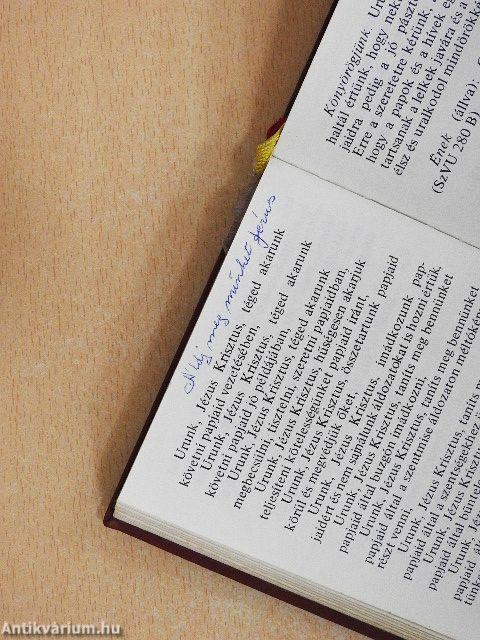 Könyörögjünk. Ur
haltál értünk, hogy nek
jaidra pedig a jó pászto
Erre a szeretetre kérünk,
hogy a papok és a hívek eg
tartsanak a lelkek javára és a
élsz és uralkodol mindörökk
Ének (állva):
(SzVU 280 B)
Áldj meg minket Jézus
Urunk, Jézus Krisztus, téged akarunk
követni papjaid vezetésében,
Urunk, Jézus Krisztus, téged akarunk
követni papjaid jó példájában,
Urunk, Jézus Krisztus, téged akarunk
megbecsülni, tisztelni, szeretni papjaidban,
Urunk, Jézus Krisztus, hűségesen akarjuk
teljesíteni kötelességünket papjaid iránt,
Urunk, Jézus Krisztus, összetartunk papjaid
körül és megvédjük őket,
Urunk, Jézus Krisztus, imádkozunk pap-
jaidért és nem sajnálunk áldozatokat is hozni értük,
Urunk, Jézus Krisztus, taníts meg bennünket
papjaid által buzgón imádkozni,
Urunk, Jézus Krisztus, taníts meg bennünket
papjaid által a szentmise áldozaton méltóképen
részt venni,
Urunk, Jézus Krisztus, taníts m
papjaid által a szentségekhez
Urunk, Jézus Krisztus,
papjaid által bűntele
Urunk, Jéz
papjaid ál
tünk
Antikvárium.hu